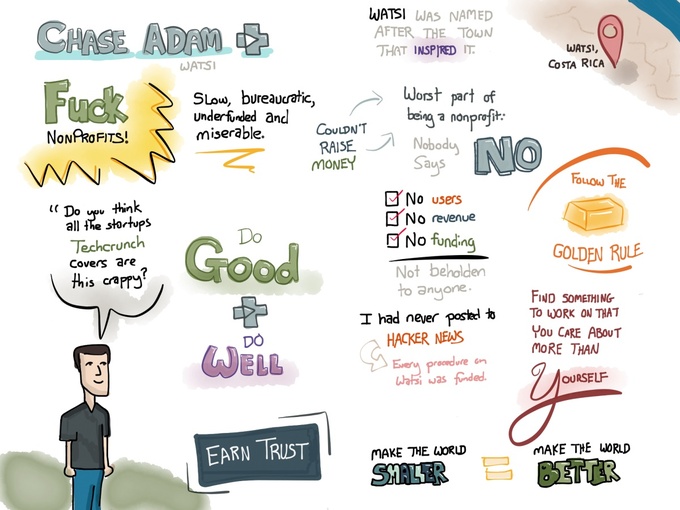 CHASE ADAM
WATSI
WATSI WAS NAMED
AFTER THE TOWN
THAT INSPIRED IT.
WATSI,
COSTA RICA
Fuck
NONPROFITS!
Slow, bureaucratic,
underfunded and
miserable.
COULDN'T
RAISE
MONEY
Worst part of
being a nonprofit:
Nobody
Says
NO
No users
No revenue
No funding
Not beholden
to anyone.
FOLLOW THE
GOLDEN RULE
"Do you think
all the startups
Techcrunch
covers are
this crappy?
DO
Good
+
DO
WELL
I had never posted to
HACKER NEWS
Every procedure on
Watsi was funded.
FIND SOMETHING
TO WORK ON THAT
YOU CARE ABOUT
MORE THAN
YOURSELF
EARN TRUST
MAKE THE WORLD
SMALLER
=
MAKE THE WORLD
BETTER